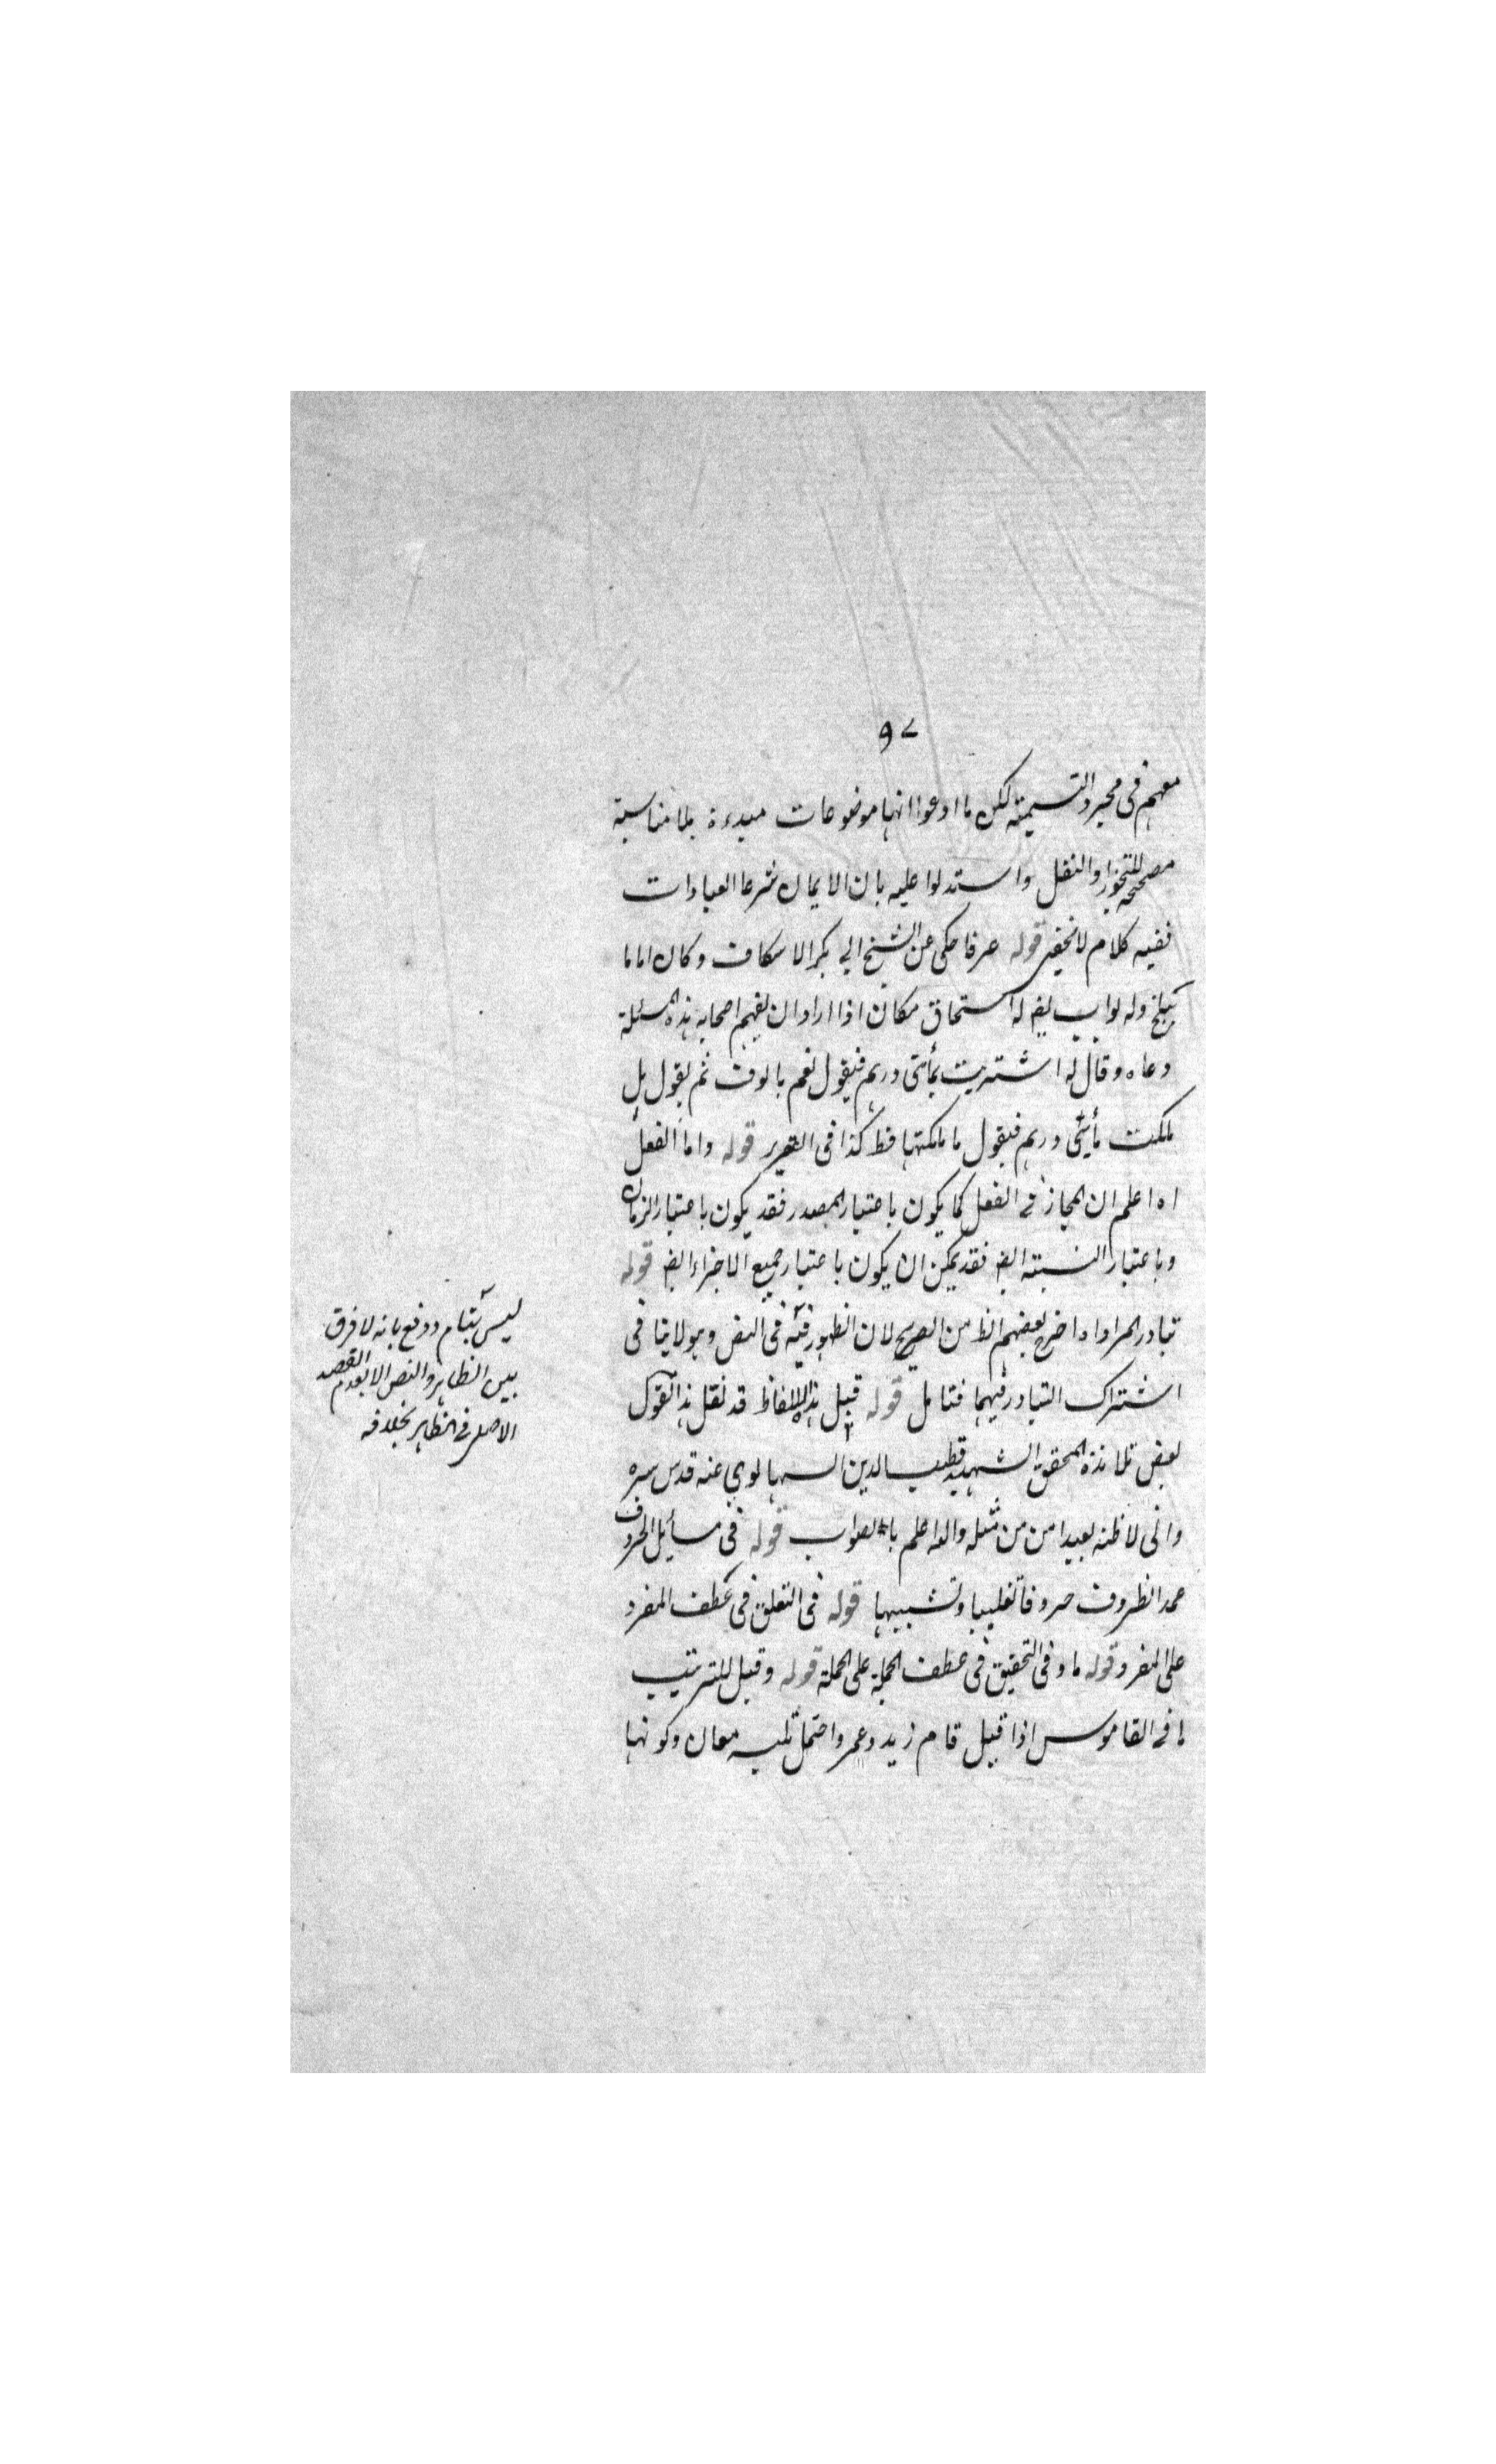 ٩٧
معهم فى مجرد التسمية لكن ما ادعوا انها موضوعات مبدءة بلا مناسبة
مصححة للتجوز والنقل واستدلوا عليه بان الايمان شرعا العبادات
ففيه كلام لا يخفى قوله عرفا حكى عن الشيخ ابي بكر الاسكاف وكان اماما
ببلخ وله بواب يقم له اسحاق مكان اذا اراد ان يفهم اصحابه هذه المسئلة
دعاه وقال له اشتريت بمأتى درهم فيقول نعم بالوف ثم يقول بل
ملكت مأيتى درهم فيقول ما ملكتها قط كذا فى التقرير قوله واما الفعل
اه اعلم ان المجاز فى الفعل كما يكون باعتبار المصدر فقد يكون باعتبار الزمان
وباعتبار النسبة ايضا فقد يمكن ان يكون باعتبار جميع الاجزاء ايضا قوله
تبادر المراد اه اخرج بعضهم الظ من الصريح لان الظهور فيه فى النص وهو لا ينافى
اشتراك التبادر فيهما فتامل قوله قيل هذه الالفاظ قد نقل هذا القول
بعض تلامذة المحقق الشهيد قطب الدين السهالوي عنه قدس سره
وانى لاظنه بعيدا من من مثله والله اعلم بالصواب قوله فى مسأيل الحروف
عد الظروف حروفا تغليبا وتشبيها قوله فى التعلق فى عطف المفرد
على المفرد قوله ما وفى التحقيق فى عطف الجملة على الجملة قوله وقيل للترتيب
فى القاموس اذا قيل قام زيد وعمرو احتمل ثلثه معان وكونها
ليس بتام ودفع بانه لا فرق
بين الظاهر والنص الا بعدم القصد
الاصلى فى الظاهر بخلافه